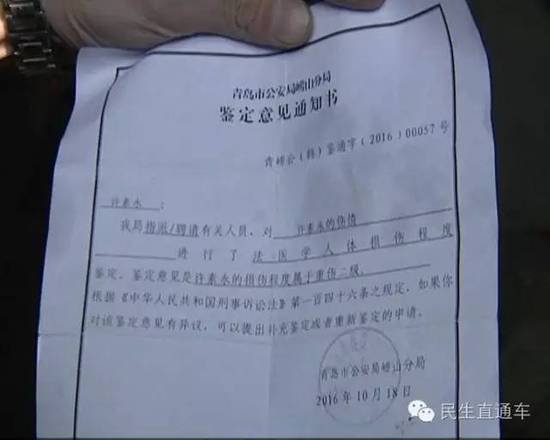 青岛市公安局崂山分局
鉴定意见通知书
青崂公(韩)鉴通字(2016)00057号
许素永:
我局指派/聘请有关人员,对许素永的伤情
进行了法医学人体损伤程度
鉴定。鉴定意见是许素永的损伤程度属于重伤二级。
根据《中华人民共和国刑事诉讼法》第一百四十六条之规定,如果你
对该鉴定意见有异议,可以提出补充鉴定或者重新鉴定的申请。
青岛市公安局崂山分局
2016年10月18日
民生直通车